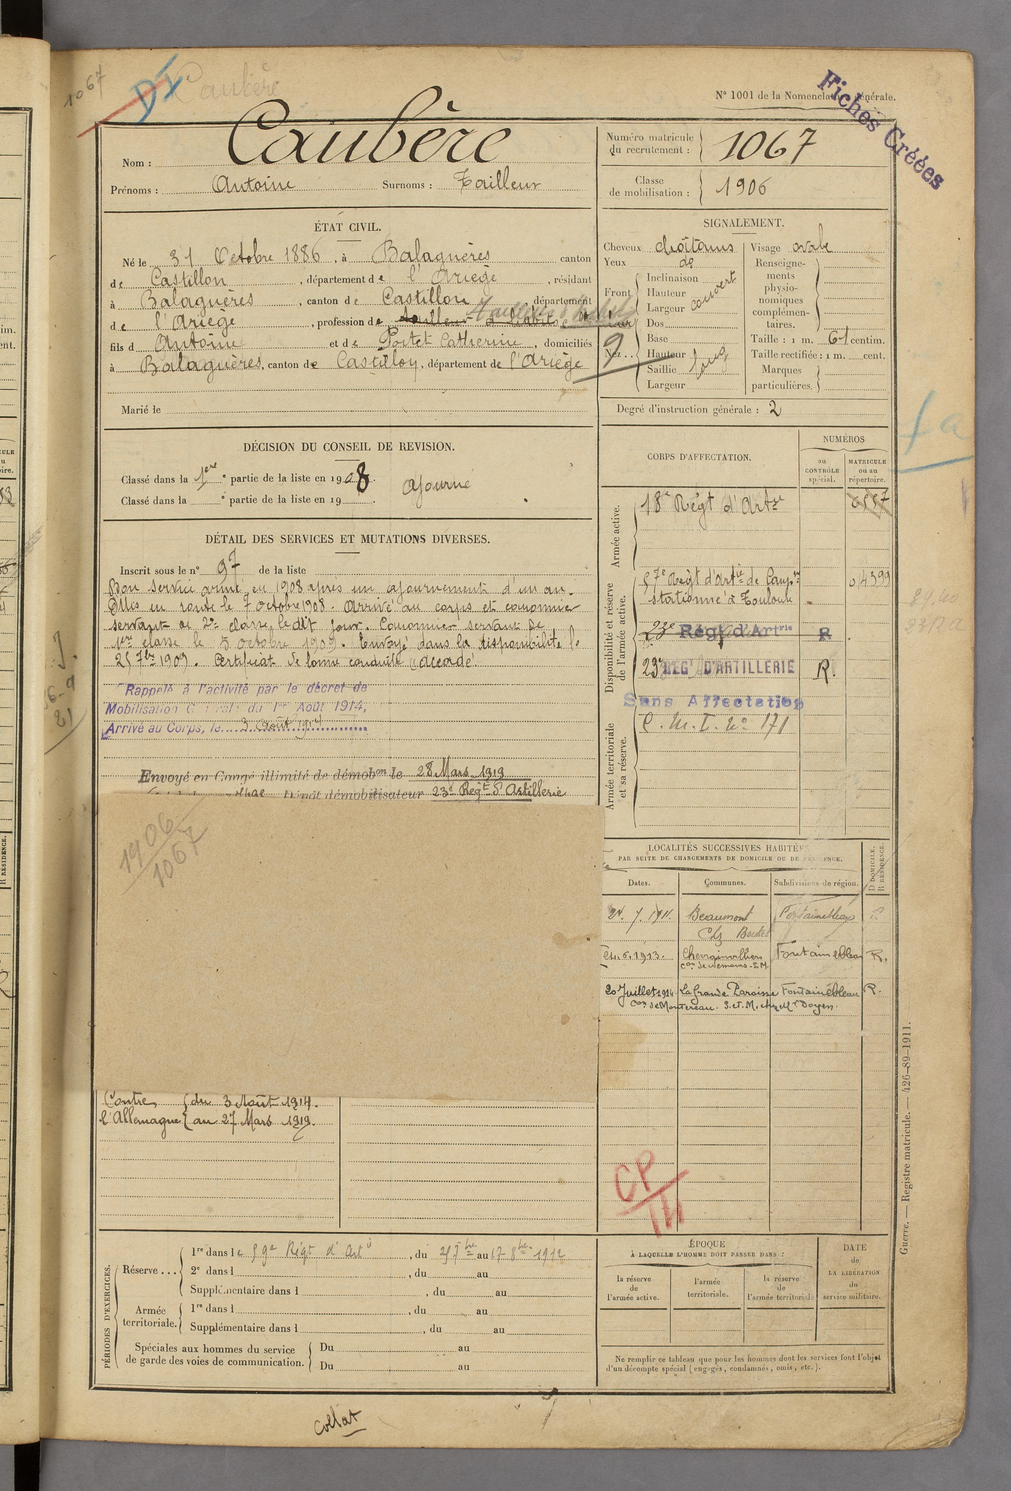 1067
DI
Caubère
N° 1001 de la Nomenclature générale.
Fiches Créées
Nom : Caubère
Prénoms : Antoine Surnoms : Tailleur
Numéro matricule du recrutement : 1067
Classe de mobilisation : 1906
ÉTAT CIVIL.
Né le 31 Octobre 1886, à Balaguères canton
de Castillon, département de l'Ariège, résidant
à Balaguères, canton de Castillon, département
de l'Ariège, profession de tailleur d'habits
fils d Antoine et de Portet Catherine, domiciliés
à Balaguères, canton de Castillon, département de l'Ariège
Marié le
SIGNALEMENT.
Cheveux châtains
Yeux de
Front
Inclinaison
Hauteur
Largeur couvert
Nez
Dos
Base
Hauteur
Saillie long
Largeur
Visage ovale
Renseignements physionomiques complémentaires.
Taille : 1 m. 61 centim.
Taille rectifiée : 1 m. cent.
Marques particulières.
Degré d'instruction générale : 2
DÉCISION DU CONSEIL DE REVISION.
Classé dans la 1ère partie de la liste en 1908.
Classé dans la ° partie de la liste en 19
ajourné
DÉTAIL DES SERVICES ET MUTATIONS DIVERSES.
Inscrit sous le n° 97 de la liste
Bon service armé en 1908 après un ajournement d'un an.
Mis en route le 7 octobre 1908. Arrivé au corps et canonnier
servant de 2e classe le dit jour. Canonnier servant de
1re classe le 5 octobre 1909. Envoyé dans la disponibilité le
25 7bre 1909. Certificat de bonne conduite accordé.
Rappelé à l'activité par le décret de
Mobilisation Générale du 1er Août 1914,
Arrivé au Corps, le 3 Août 1914
Envoyé en Congé illimité de démobon le 28 Mars 1919
Dépôt démobilisateur 23e Régt d'Artillerie
1906
1067
Contre l'Allemagne { du 3 Août 1914.
au 27 Mars 1919.
CORPS D'AFFECTATION.
NUMÉROS
au CONTRÔLE spécial.
MATRICULE ou au répertoire.
Armée active.
18e Régt d'Artie
Disponibilité et réserve de l'armée active.
57e Régt d'Artie de Campne 04399
stationné à Toulouse
23e Régt d'Artrie R
23e REGt D'ARTILLERIE R.
Sans Affectation
Armée territoriale et sa réserve.
C. M. I. n° 171
LOCALITÉS SUCCESSIVES HABITÉES
PAR SUITE DE CHANGEMENTS DE DOMICILE OU DE RÉSIDENCE.
Dates. Communes. Subdivisions de région. D DOMICILE. R RÉSIDENCE.
Beaumont Fontainebleau
1913. Fontainebleau R.
20 Juillet 1914 La Grande Paroisse Fontainebleau R.
Con de Montereau. S. et M. chez Mr Doyen
CP
14
PÉRIODES D'EXERCICES.
Réserve
1re dans le 59e Régt d'Artie, du au 17 8bre 1912
2e dans l , du au
Supplémentaire dans l , du au
Armée territoriale.
1re dans l , du au
Supplémentaire dans l , du au
Spéciales aux hommes du service de garde des voies de communication.
Du au
Du au
ÉPOQUE
À LAQUELLE L'HOMME DOIT PASSER DANS :
la réserve de l'armée active.
l'armée territoriale.
la réserve de l'armée territoriale
DATE de LA LIBÉRATION du service militaire.
Ne remplir ce tableau que pour les hommes dont les services font l'objet
d'un décompte spécial (engagés, condamnés, omis, etc.).
Guerre. — Registre matricule. — 426-89-1911.